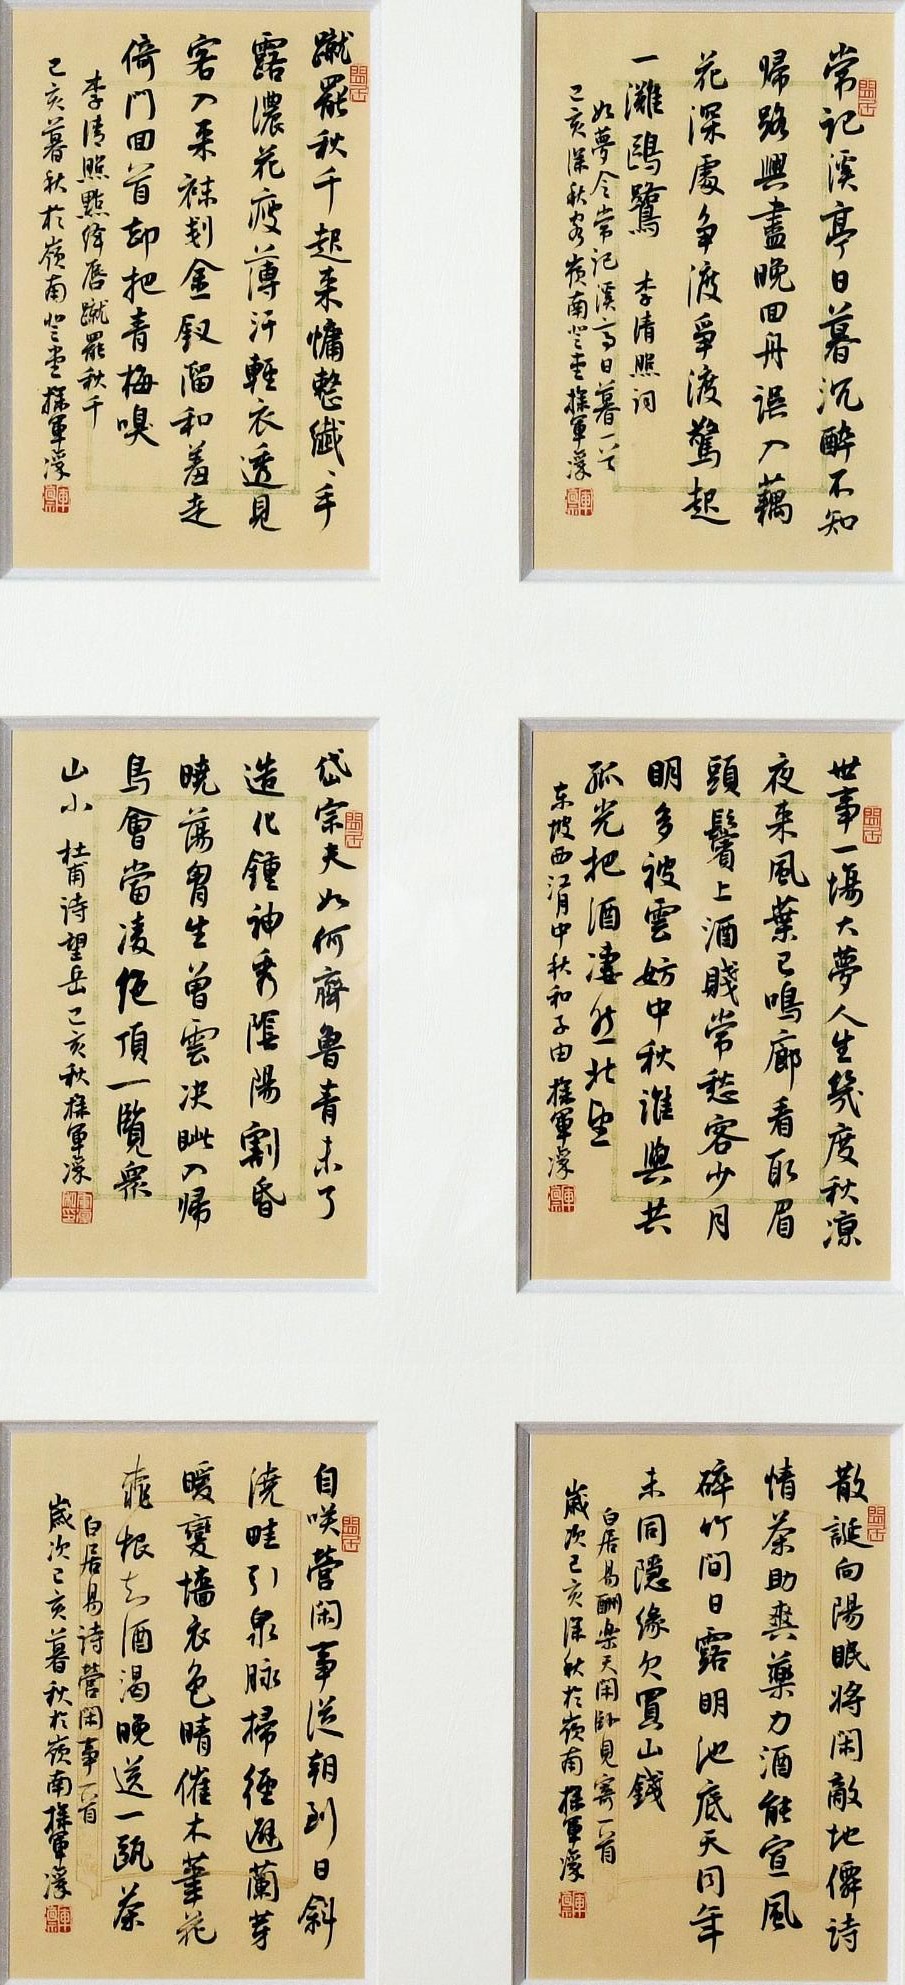 常记溪亭日暮沉醉不知
歸路興盡晚回舟误入藕
花深處争渡争渡驚起
一灘鷗鷺 李清照词
如夢令常记溪亭日暮一首
己亥深秋客嶺南
蹴罷秋千起来慵整纖、手
露濃花瘦薄汗輕衣透見
客入来襪剗金釵溜和羞走
倚門回首却把青梅嗅
李清照點绛唇蹴罷秋千
己亥暮秋於嶺南
世事一塲大夢人生幾度秋凉
夜来風葉已鳴廊看取眉
頭鬢上酒賤常愁客少月
明多被雲妨中秋誰與共
孤光把酒凄然北望
东坡西江月中秋和子由
岱宗夫如何齊魯青未了
造化鍾神秀陰陽割昏
曉蕩胷生曾雲决眦入归
鳥會當凌绝頂一覽衆
山小 杜甫诗望岳己亥秋
散誕向陽眠将闲敵地僊诗
情茶助爽藥力酒能宣風
碎竹間日露明池底天同年
未同隱缘欠買山錢
白居易酬樂天閑卧見寄一首
歲次己亥深秋於嶺南
自咲營闲事從朝到日斜
澆畦引泉脉掃徑避蘭芽
暖變墻衣色晴催木筆花
桃根知酒渴晚送一甌茶
白居易诗營闲事一首
歲次己亥暮秋於嶺南